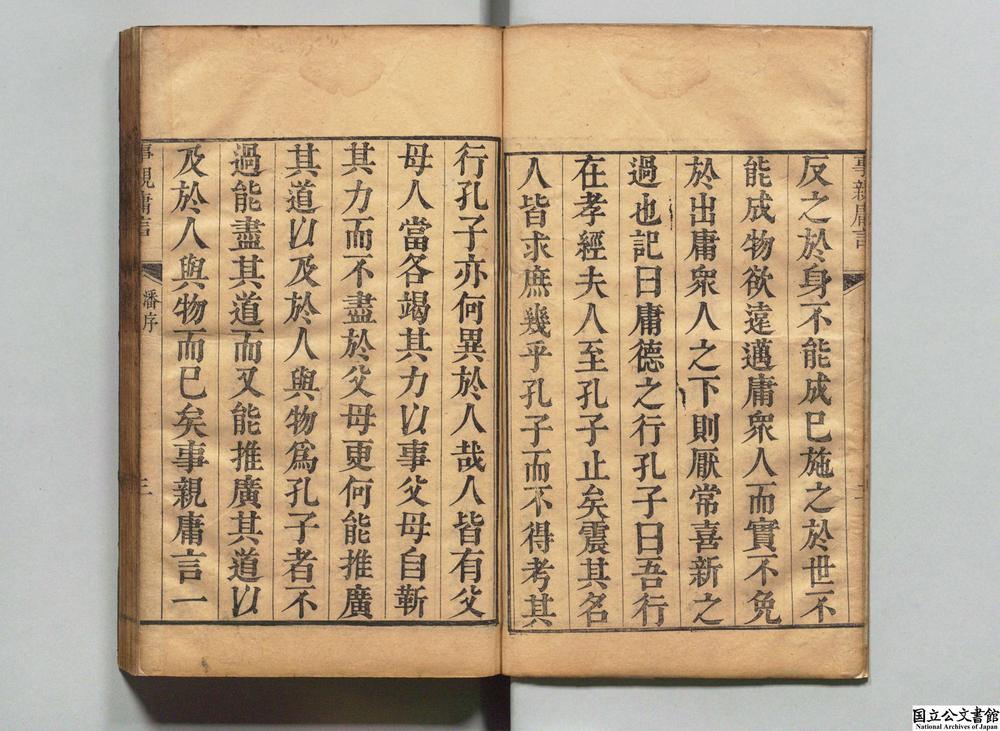 反之於身不能成已施之於世不
能成物欲遠邁庸衆人而實不免
於出庸衆人之下則厭常喜新之
過也記曰庸德之行孔子曰吾行
在孝經夫人至孔子止矣震其名
人皆求庶幾乎孔子而不得考其
行孔子亦何異於人哉人皆有父
母人當各竭其力以事父母自靳
其力而不盡於父母更何能推廣
其道以及於人與物爲孔子者不
過能盡其道而又能推廣其道以
及於人與物而已矣事親庸言一
事親庸言
潘序
三
国立公文書館
National Archives of Japan